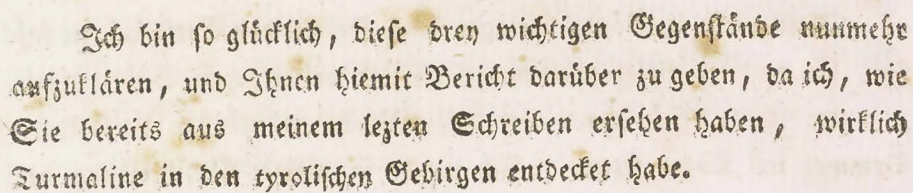 Ich bin ſo glücklich, dieſe drey wichtigen Gegenſtände nunmehr
aufzuklären, und Ihnen hiemit Bericht darüber zu geben, da ich, wie
Sie bereits aus meinem lezten Schreiben erſehen haben, wirklich
Turmaline in den tyroliſchen Gebirgen entdecket habe.